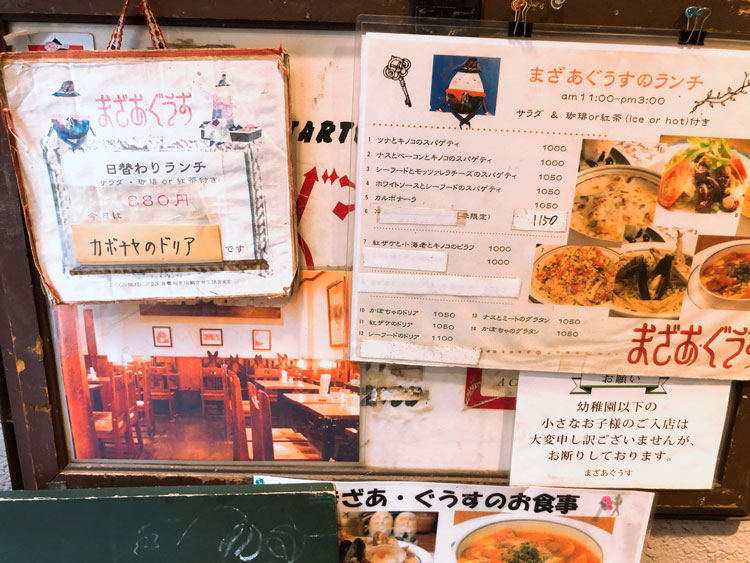 まざあぐうす
日替わりランチ
サラダ・珈琲or紅茶付き
880円
今日は
カボチャのドリア
です
TART
まざあぐうすのランチ
am 11:00~pm3:00
サラダ & 珈琲or紅茶(ice or hot)付き
1 ツナとキノコのスパゲティ 1000
2 ナスとベーコンとキノコのスパゲティ 1000
3 シーフードとモッツァレラチーズのスパゲティ 1050
4 ホワイトソースとシーフードのスパゲティ 1050
5 カルボナーラ 1050
6 限定) 1150
7 紅ザケと小海老とキノコのピラフ 1000
1000
10 かぼちゃのドリア 1050
11 紅ザケのドリア 1050
12 シーフードのドリア 1100
13 ナスとミートのグラタン 1050
14 かぼちゃのグラタン 1050
まざあぐうす
お願い
幼稚園以下の
小さなお子様のご入店は
大変申し訳ございませんが、
お断りしております。
まざあぐうす
まざあ・ぐうすのお食事